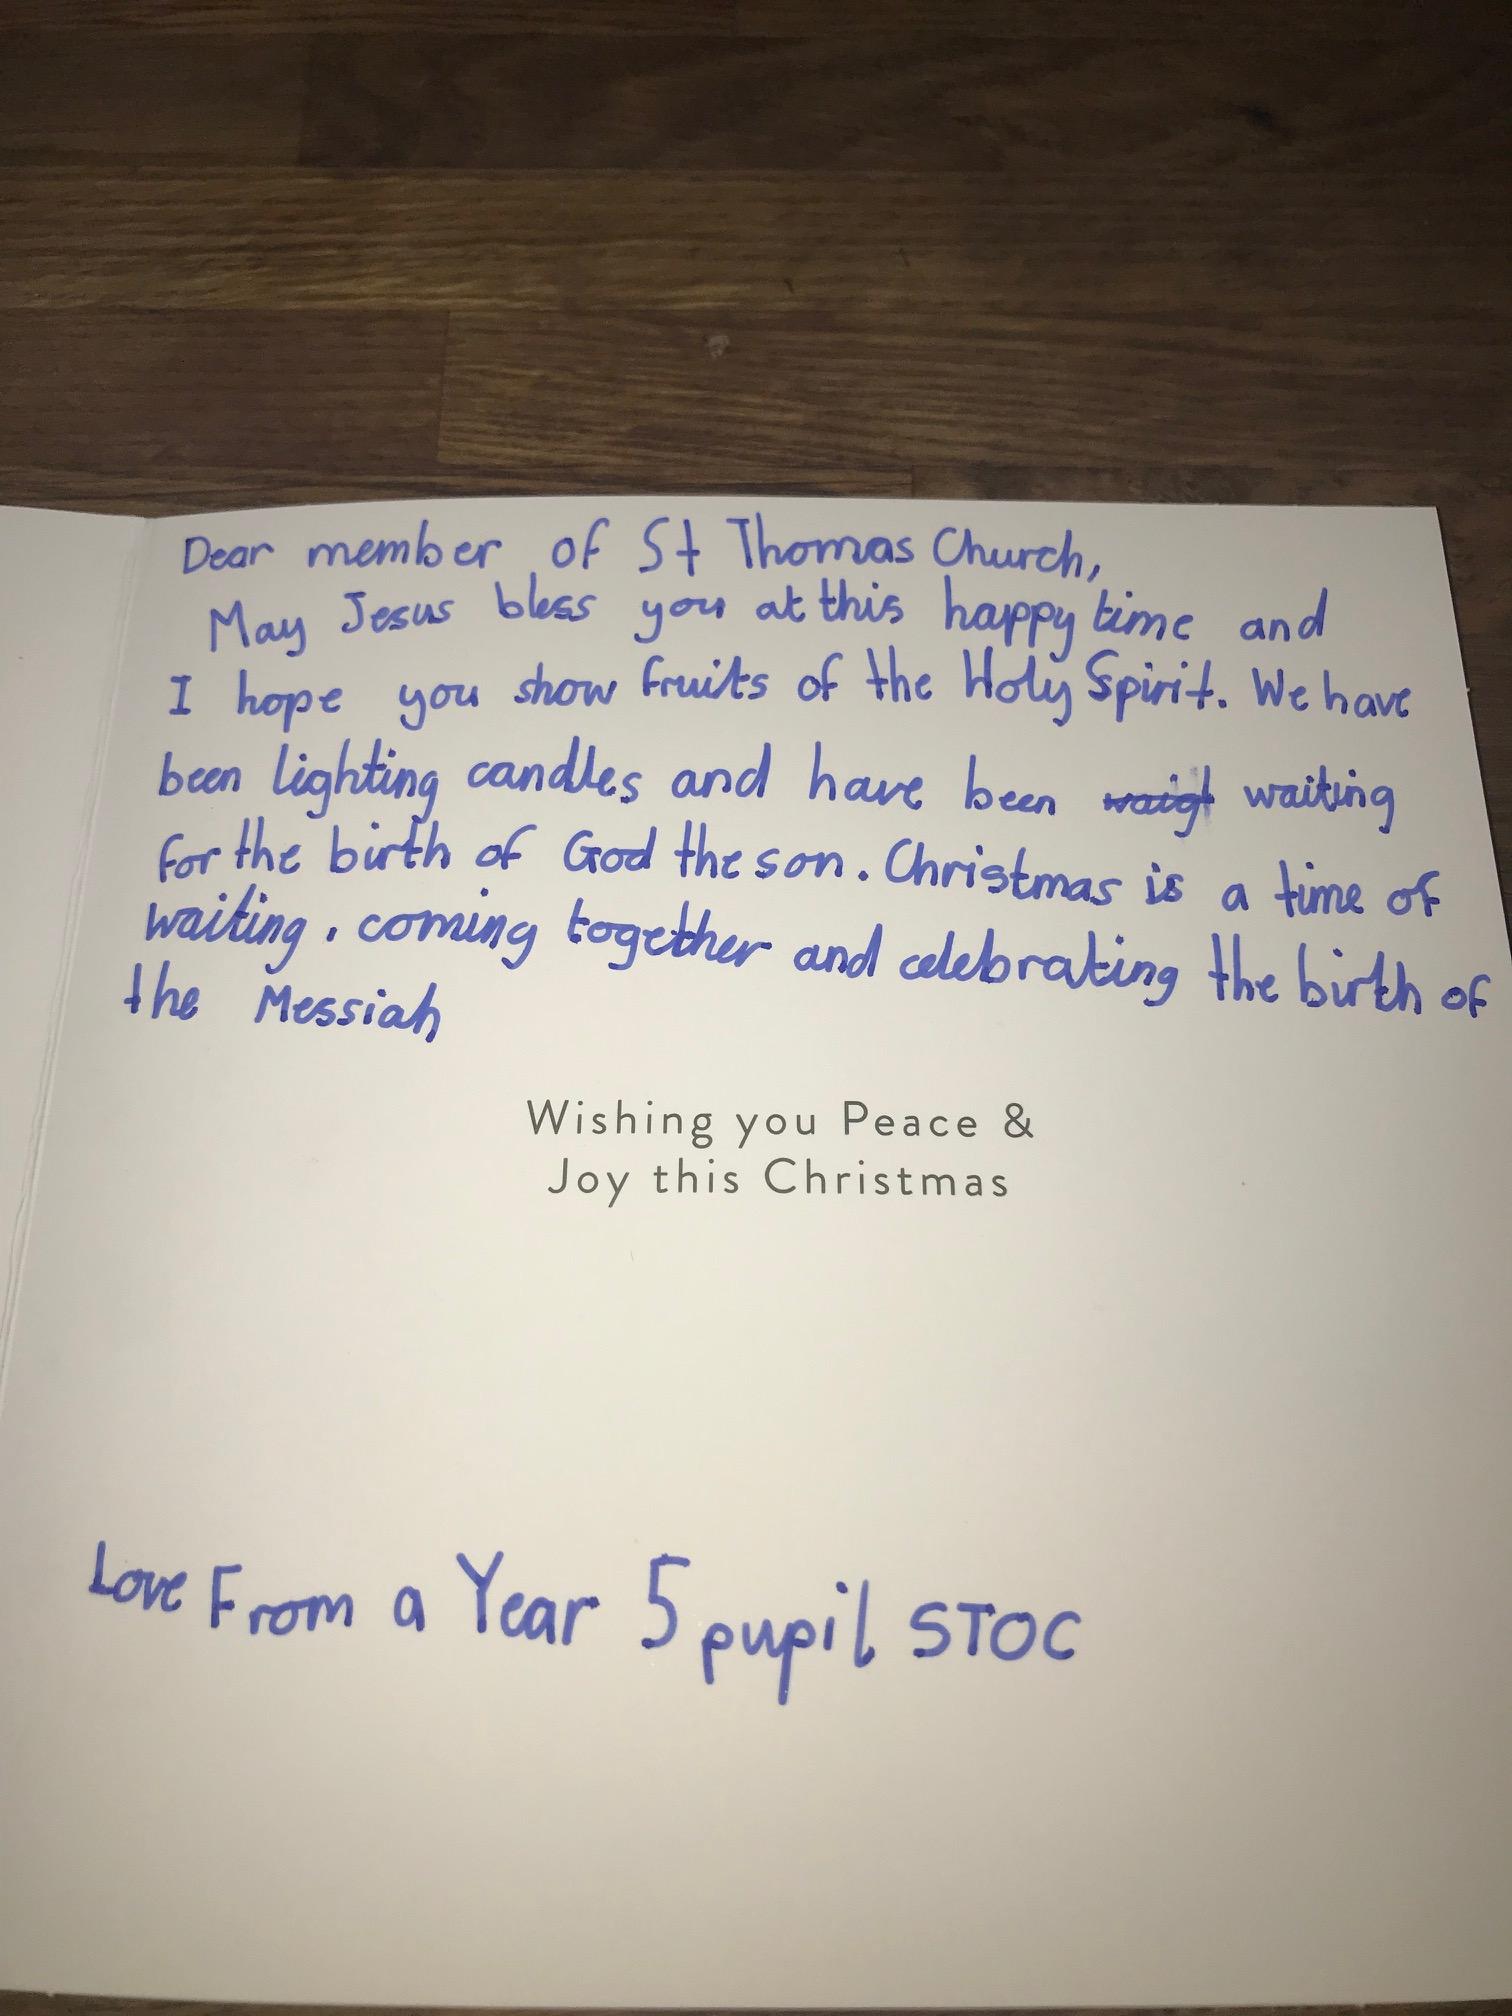 Dear member of St Thomas Church,
May Jesus bless you at this happy time and
I hope you show fruits of the Holy Spirit. We have
been lighting candles and have been waigt waiting
for the birth of God the son. Christmas is a time of
waiting. coming together and celebrating the birth of
the Messiah
Wishing you Peace &
Joy this Christmas
Love From a Year 5 pupil STOC